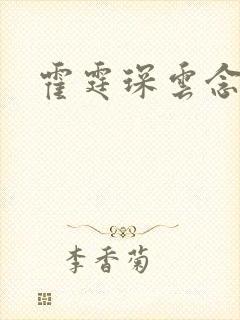 霍霆琛雲念
李香菊